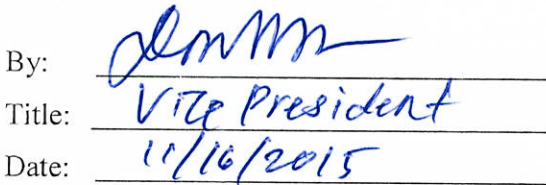 By:
Title: Vice President
Date: 11/16/2015